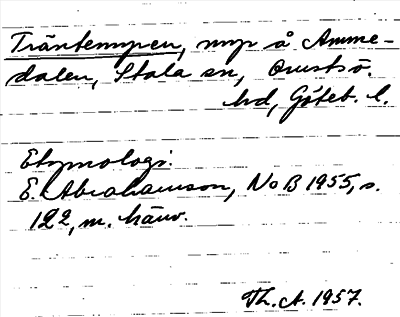 Träntemyren, myr å Amme-
dalen, Stala sn, Orustsö.
hd, Göteb. l.
Etymologi:
E. Abrahamson, NoB 1955, s.
122, m. hänv.
Th. A. 1957.